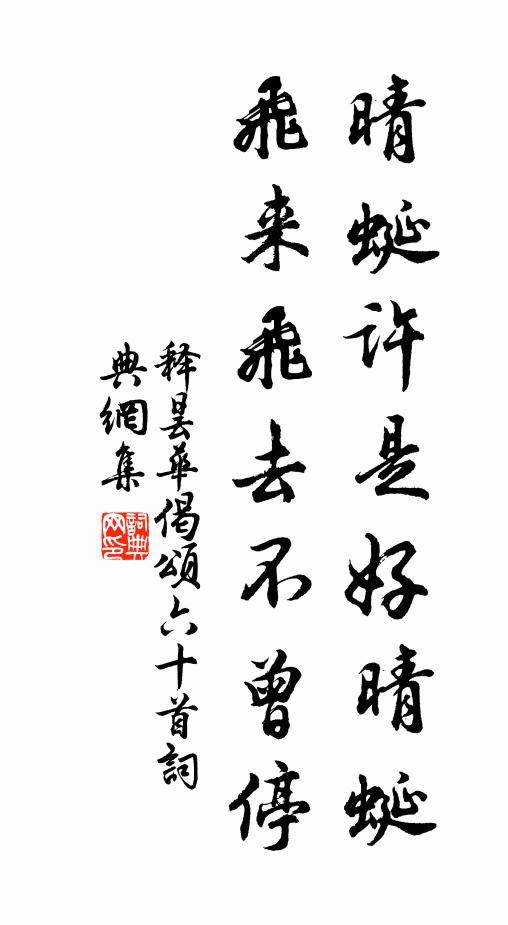 晴蜒许是好晴蜒
飛来飛去不曾停
释曇華偈頌六十首詞
典網集
詞典
网印